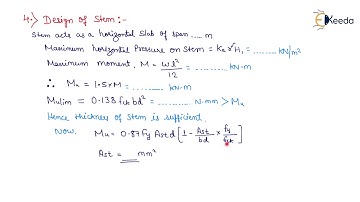 4.) Design of Stem :-
Ekeeda
Stem acts as a horizontal Slab of span .... m
Maximum horizontal Pressure on Stem = Ka γ H1 = ......... kN/m²
Maximum moment, M = wl²/12 = ......... kN-m
∴ Mu = 1.5×M = ......... kN-m
Mulim = 0.138 fck bd² = ......... N-mm > Mu
Hence thickness of Stem is sufficient.
Now, Mu = 0.87 fy Ast d [1 - Ast/bd × fy/fck]
Ast = ___ mm²